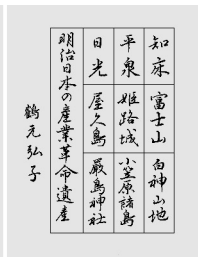 知床 富士山 白神山地
平泉 姫路城 小笠原諸島
日光 屋久島 厳島神社
明治日本の産業革命遺産
鶴元弘子